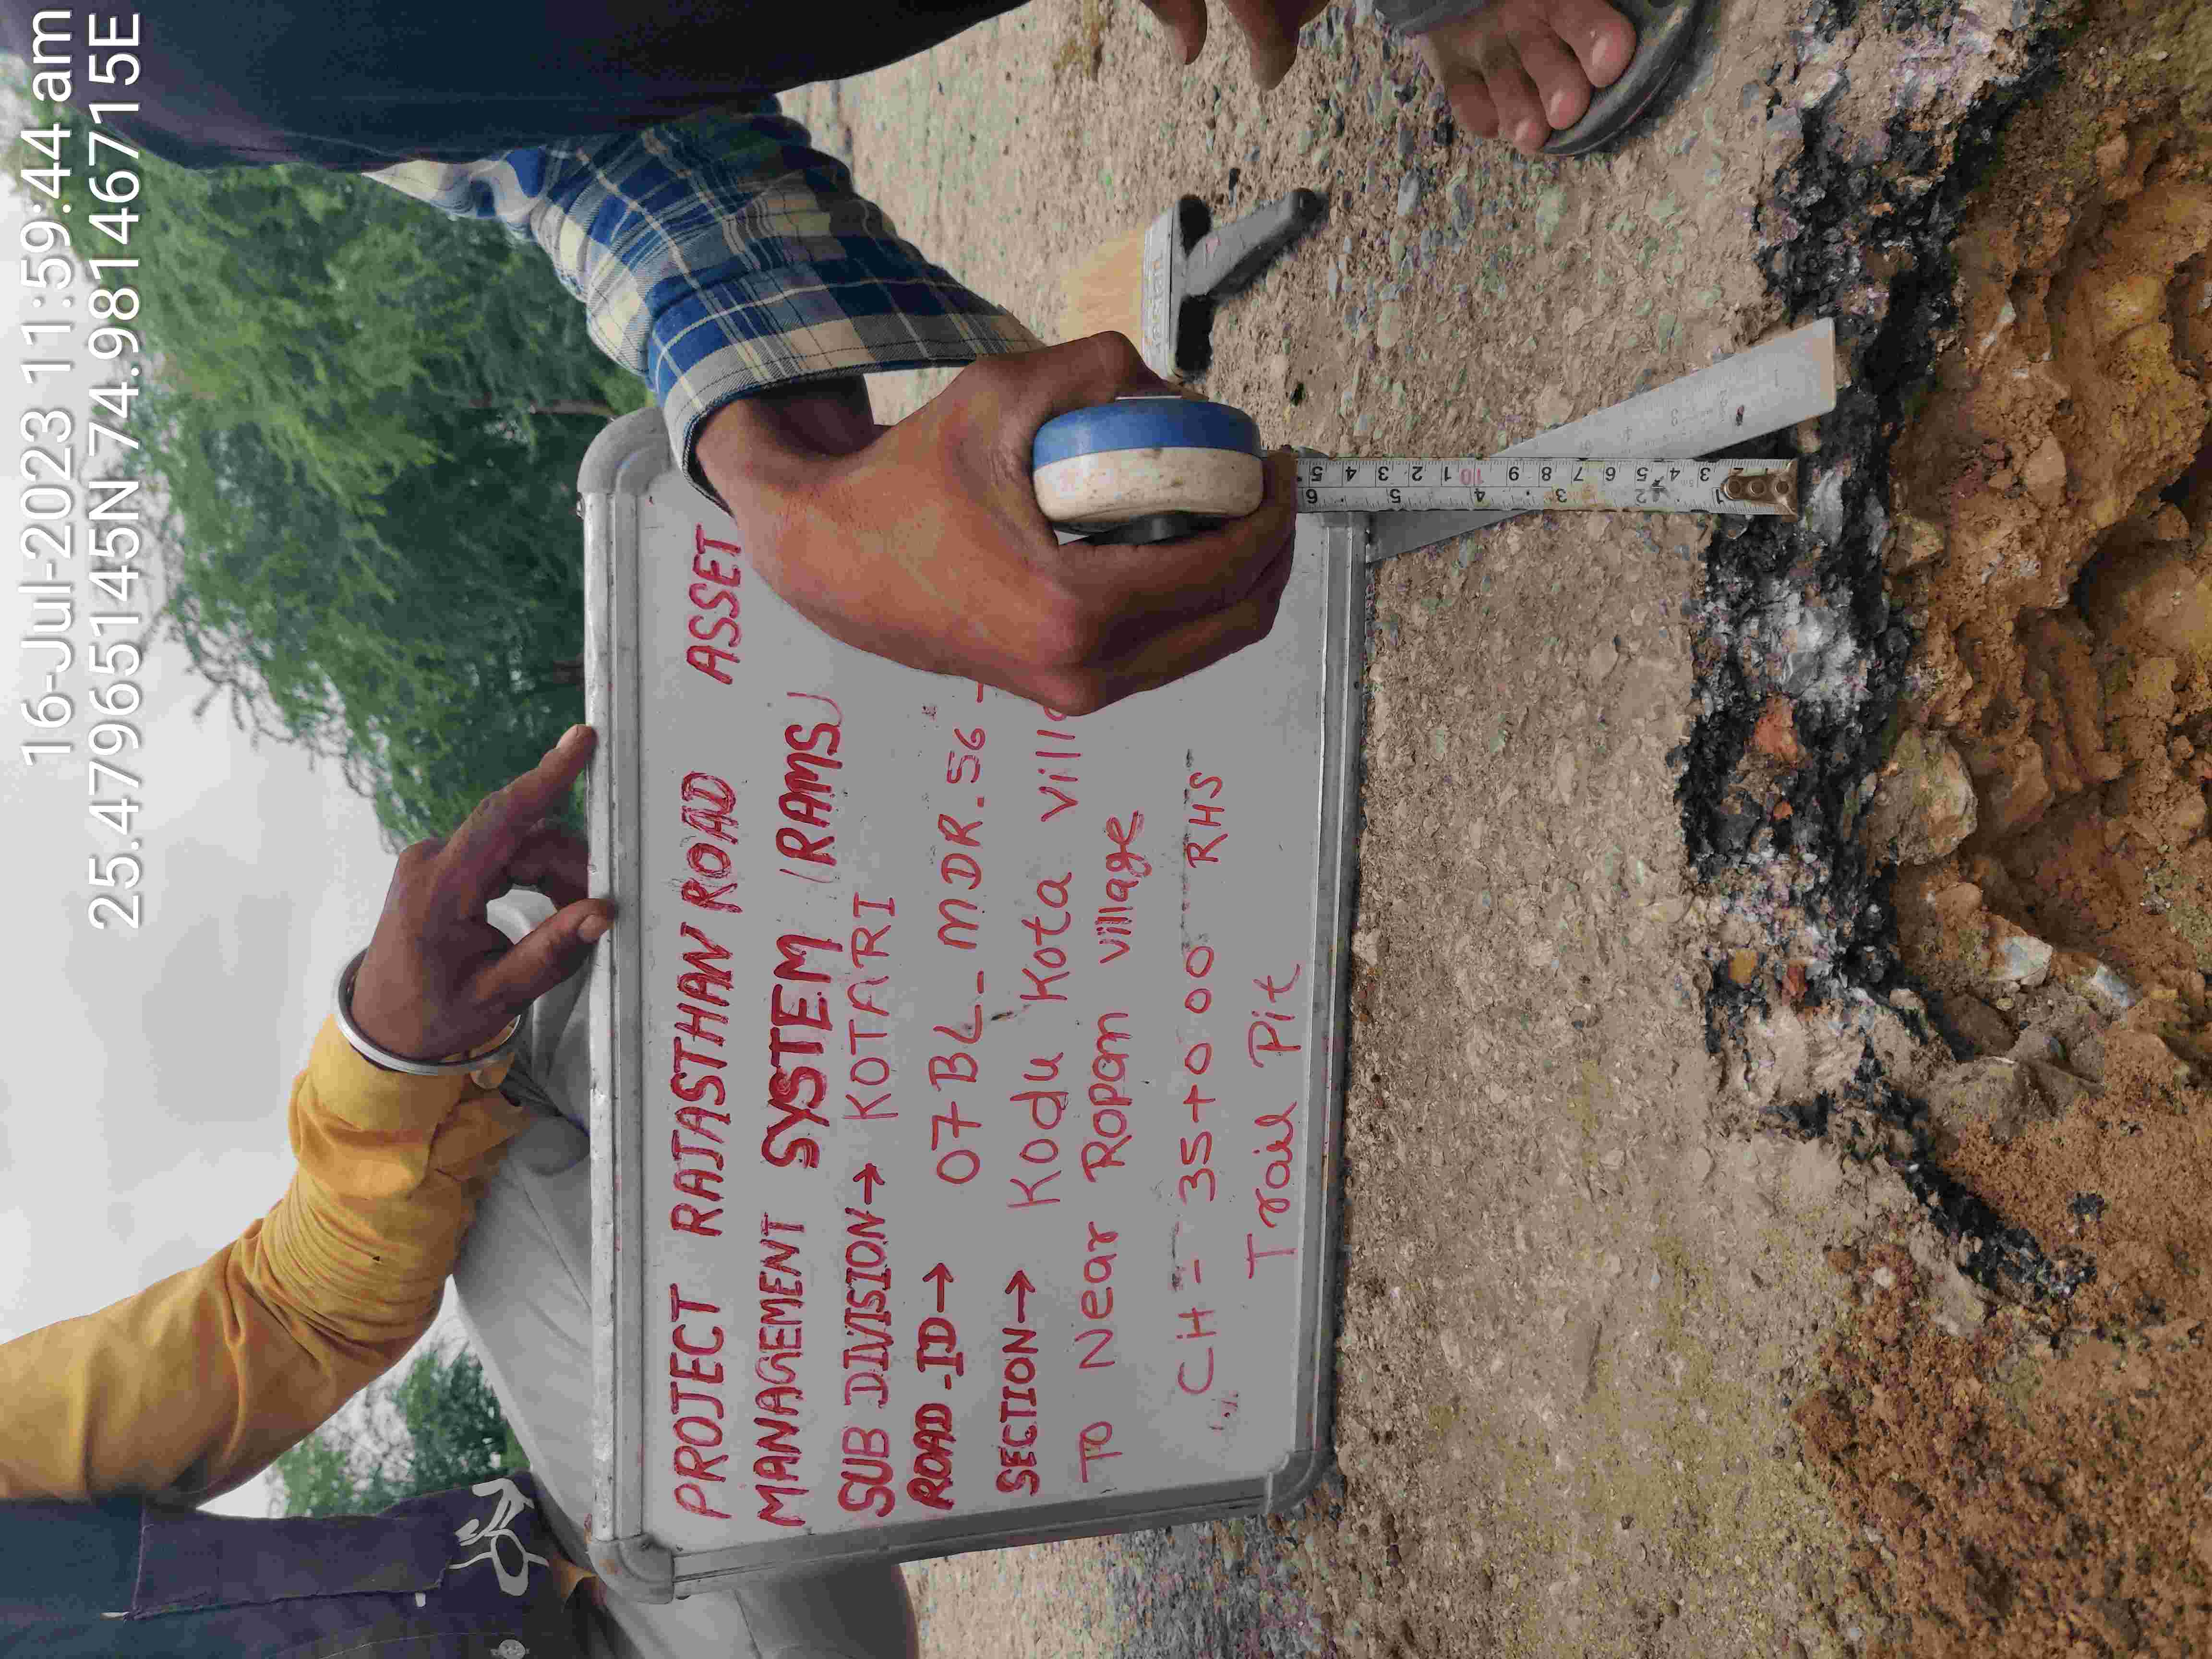 16-Jul-2023 11:59:44 am
25.47965145N 74.98146715E
PROJECT RAJASTHAN ROAD ASSET
MANAGEMENT SYSTEM (RAMS)
SUB DIVISION→ KOTARI
ROAD-ID→ 07BL-MDR.56-
SECTION→ Kodu Kota
To Near Ropan village
CH - 35+000 RHS
Trail Pit